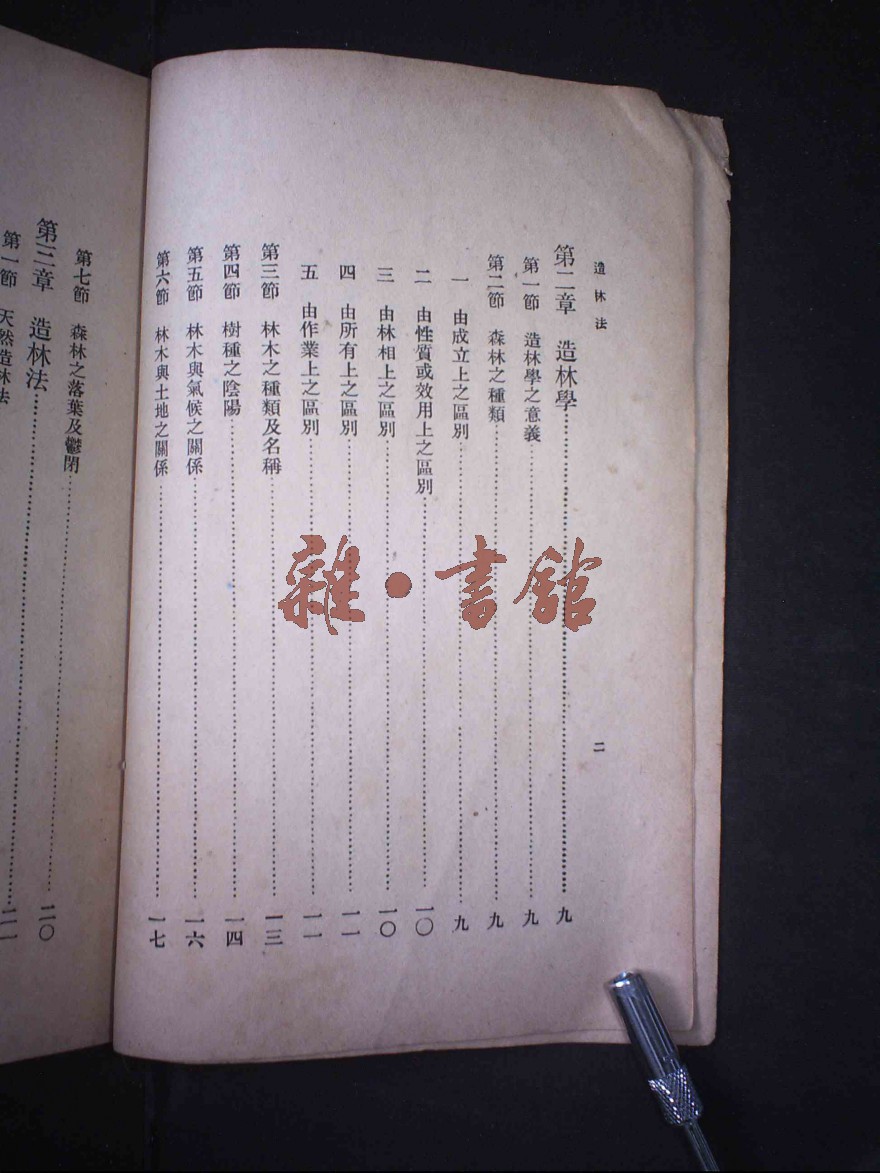 造林法
二
第二章　造林學……九
第一節　造林學之意義……九
第二節　森林之種類……九
一　由成立上之區別……九
二　由性質或效用上之區別……一〇
三　由林相上之區別……一〇
四　由所有上之區別……一一
五　由作業上之區別……一一
第三節　林木之種類及名稱……一三
第四節　樹種之陰陽……一四
第五節　林木與氣候之關係……一六
第六節　林木與土地之關係……一七
第七節　森林之落葉及鬱閉……二〇
第三章　造林法……二一
第一節　天然造林法
雜·書館